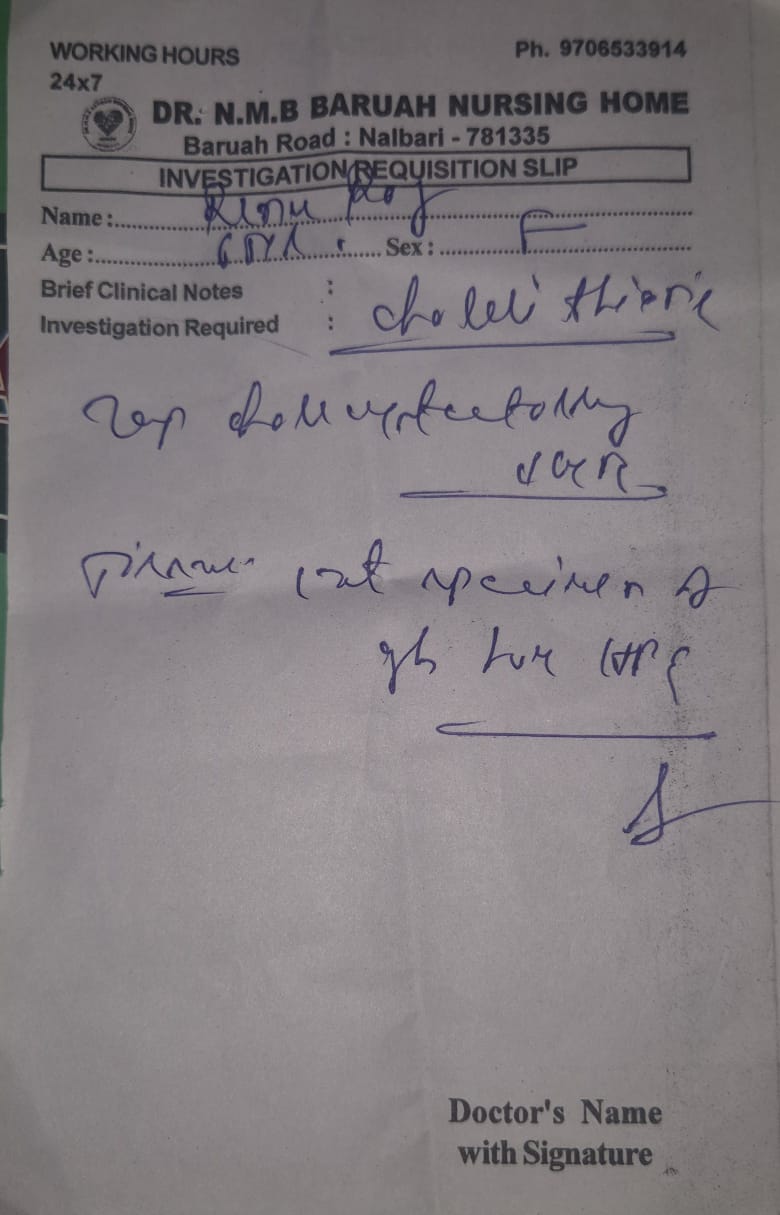 WORKING HOURS Ph. 9706533914
24x7
DR. N.M.B BARUAH NURSING HOME
Baruah Road : Nalbari - 781335
INVESTIGATION REQUISITION SLIP
Name : Renu Roy
Age : Sex : F
Brief Clinical Notes :
Investigation Required : cholelithiasis
Lap cholecystectomy

specimen of
gb for HPE
Doctor's Name
with Signature